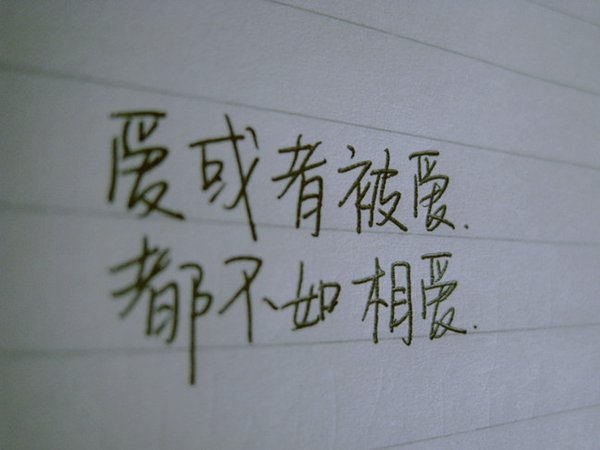 爱或者被爱.
都不如相爱.